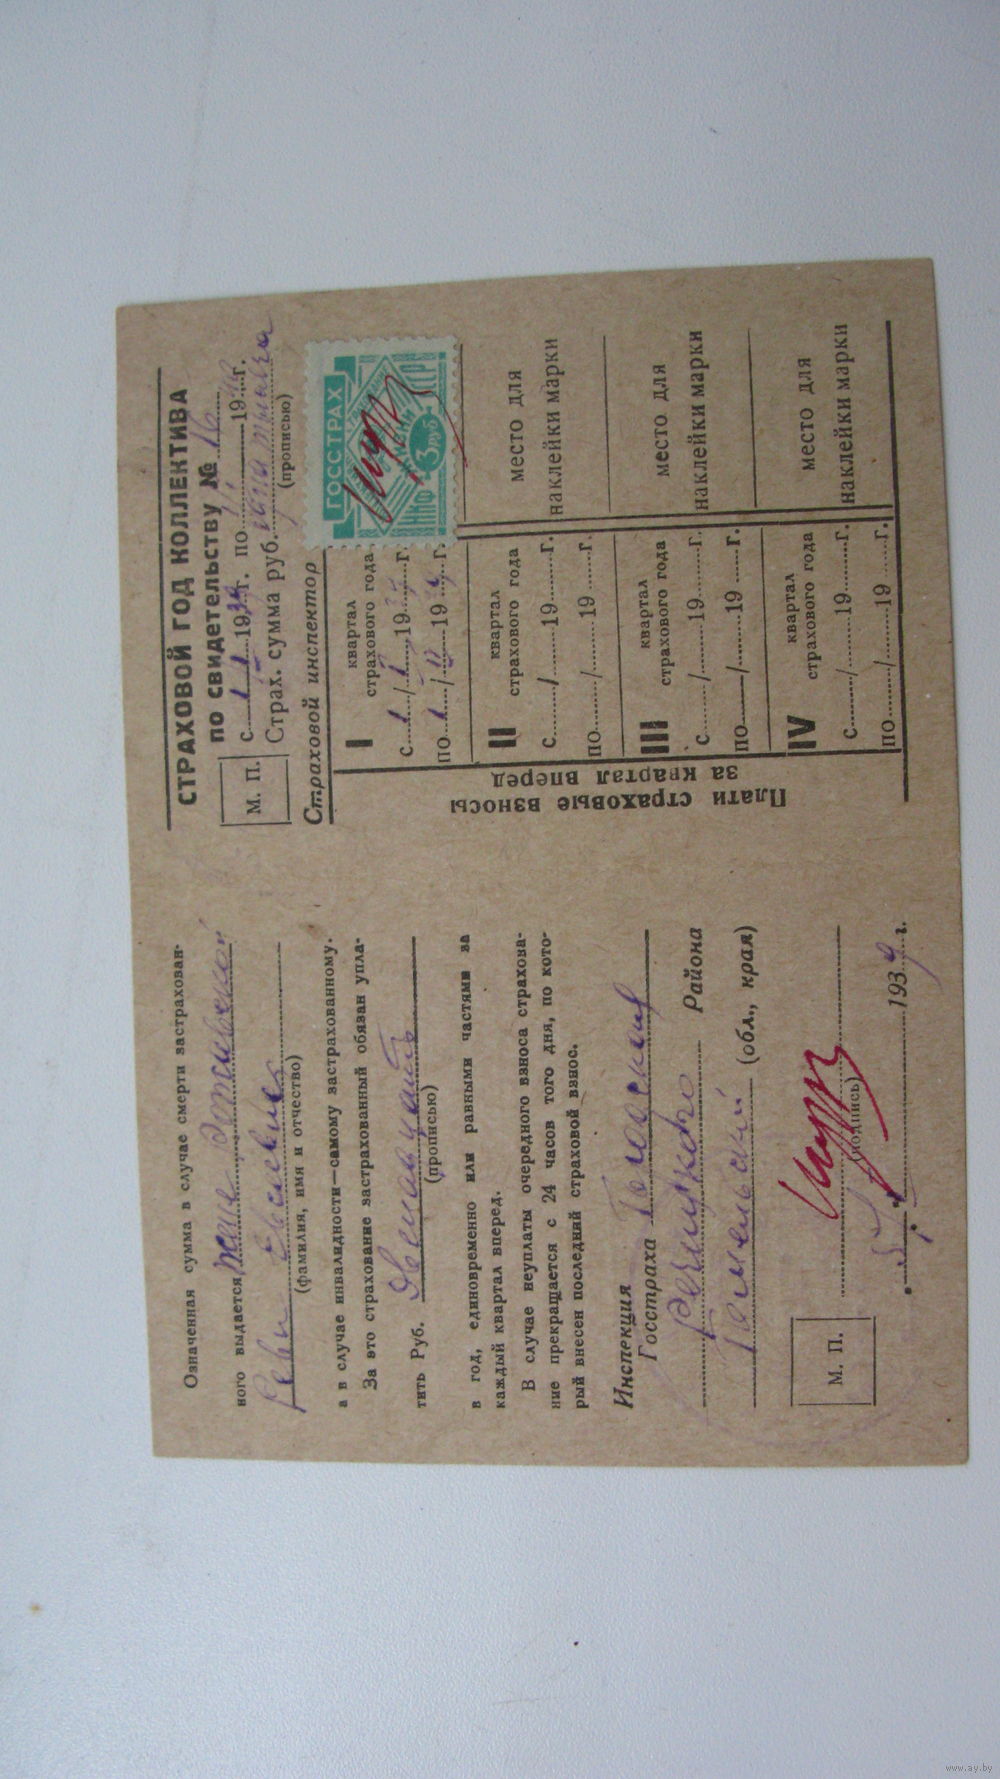 Означенная сумма в случае смерти застрахован-
ного выдается жене
Евсеевне
(фамилия, имя и отчество)
а в случае инвалидности—самому застрахованному.
За это страхование застрахованный обязан упла-
тить Руб. Двенадцать
(прописью)
в год, единовременно или равными частями за
каждый квартал вперед.
В случае неуплаты очередного взноса страхова-
ние прекращается с 24 часов того дня, по кото-
рый внесен последний страховой взнос.
Инспекция
Госстраха
Района
Гомельской (обл., края)
(подпись)
М. П.
1939 г.
СТРАХОВОЙ ГОД КОЛЛЕКТИВА
ПО СВИДЕТЕЛЬСТВУ № 16
М. П.
с 1939 г. по 19 г.
Страх. сумма руб.
(прописью)
Страховой инспектор
Плати страховые взносы
за квартал вперед
I квартал
страхового года
с 1/ 1939 г.
по 1/ 1939 г.
ГОССТРАХ
3 РУБ
НКФ СССР
II квартал
страхового года
с / 19 г.
по / 19 г.
место для
наклейки марки
III квартал
страхового года
с / 19 г.
по / 19 г.
место для
наклейки марки
IV квартал
страхового года
с / 19 г.
по / 19 г.
место для
наклейки марки
www.ay.by